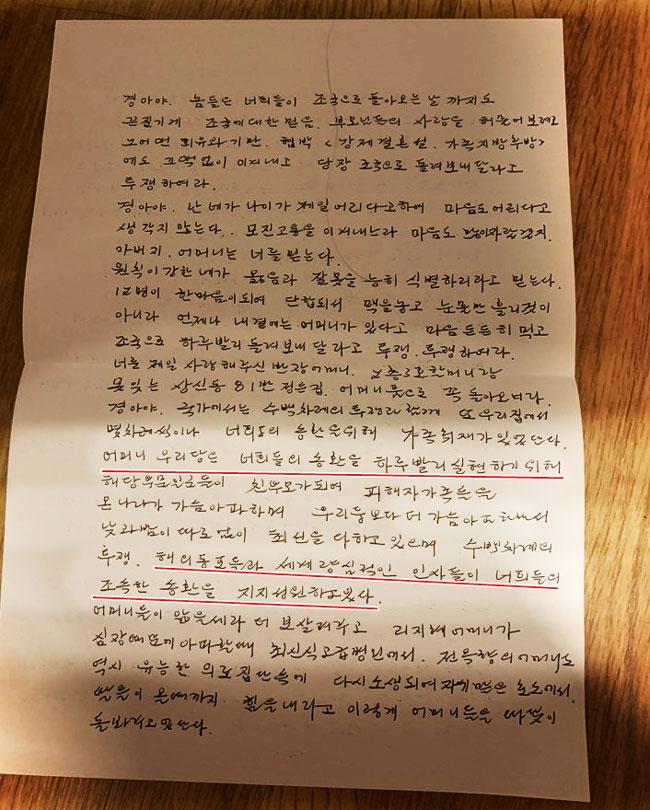 경아야. 놈들은 너희들이 조국으로 돌아오는 날 까지도
끈질기게 조국에대한 믿음. 부모님들의 사랑을 허물어보려고
그어떤 회유과 기만. 협박 <강제결혼설. 가족지방추방>
에도 끄떡없이 이겨내고 당장 조국으로 돌려보내달라고
투쟁하여라.
경아야. 난 네가 나이가 제일어리다고하여 마음도어리다고
생각지 않는다.. 모진고통을 이겨내느라 마음도 많이자랐겠지.
아버지. 어머니는 너를믿는다.
원칙이강한네가 옳음과 잘못을 능히 식별하리라고 믿는다.
12명이 한마음이되여 단합되서 맥을놓고 눈물만 흘리것이
아니라 언제나 내곁에는 어머니가 있다고 마음든든히 먹고
조국으로 하루빨리 돌려보내달라고 투쟁. 투쟁하여라.
너를 제일 사랑해주신 반장어머니. 2층3호할머니랑
못잊는 상신동 81반 정든집. 어머니품으로 꼭 돌아오너라.
경아야. 국가에서는 수백차례의 투쟁과 함께 또 우리집에서
몇차례씩이나 너희들의 송환을위해 가족취재가있었단다.
어머니 우리당은 너희들의 송환을 하루빨리실현하기위해
해당부문일군들이 친부모가되여 피해자가족들을
온나라가 가슴아파하며 우리들보다더 가슴아파하면서
낮과밤이 따로없이 최선을 다하고있으며 수백차례의
투쟁. 해외동포들과 세계량심적인 인사들이 너희들의
조속한 송환을 지지성원하고있다.
어머니들이 앓을세라 더 보살펴주고 리지예어머니가
심장때문에아파할때 최신식고급병원에서. 전옥향의어머니도
역시 유능한 의료집단속에 다시소생되여 자기맡은 초소에서
딸들이 올때까지 힘을내라고 이렇게 어머니들을 따뜻이
돌봐주고있단다.